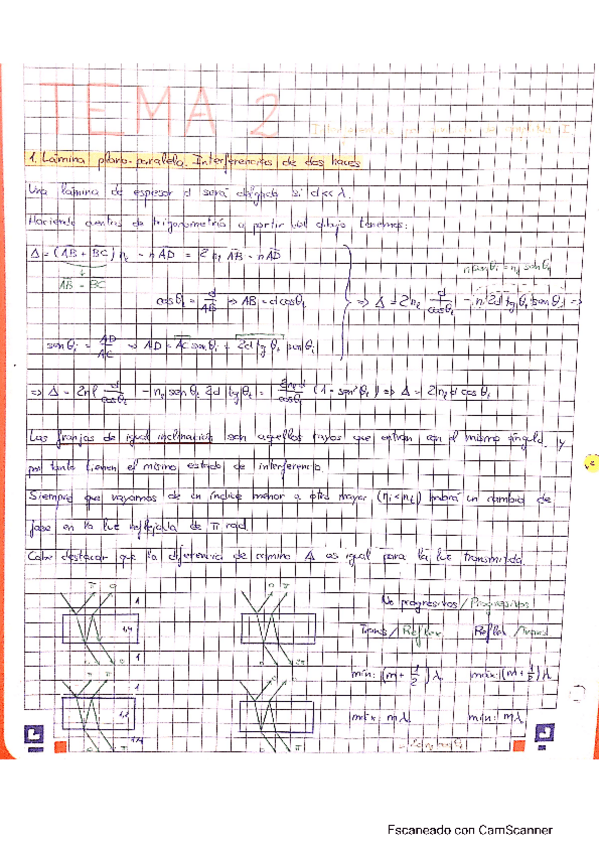 TEMA 2
1. Lámina plano-paralela. Interferencias de dos haces
Una lámina de espesor d será delgada si d<<λ.
Haciendo cuentas de trigonometría a partir del dibujo tenemos:
Δ = (AB + BC) n_t - n AD = 2 n_t AB - n AD
AB = BC
n senθi = n_t senθt
cosθt = d/AB ⇒ AB = d cosθt
⇒ Δ = 2n_t d/cosθt - n 2d tgθt senθi ⇒
senθi = AD/AC ⇒ AD = AC senθi = 2d tgθt senθi
⇒ Δ = 2n_t d/cosθt - n_t senθt 2d tgθt = 2n_t d/cosθt (1 - sen²θt) ⇒ Δ = 2n_t d cosθt
Las franjas de igual inclinación son aquellos rayos que entran con el mismo ángulo, y
por tanto tienen el mismo estado de interferencia.
Siempre que vayamos de un índice menor a otro mayor (ni<nt) habrá un cambio de
fase en la luz reflejada de π rad.
Cabe destacar que la diferencia de camino Δ es igual para la luz transmitida.
No progresivos/Progresivos
Trans/Reflex Reflex/Trans
mín: (m+1/2)λ máx: (m+1/2)λ
máx: mλ mín: mλ
Escaneado con CamScanner